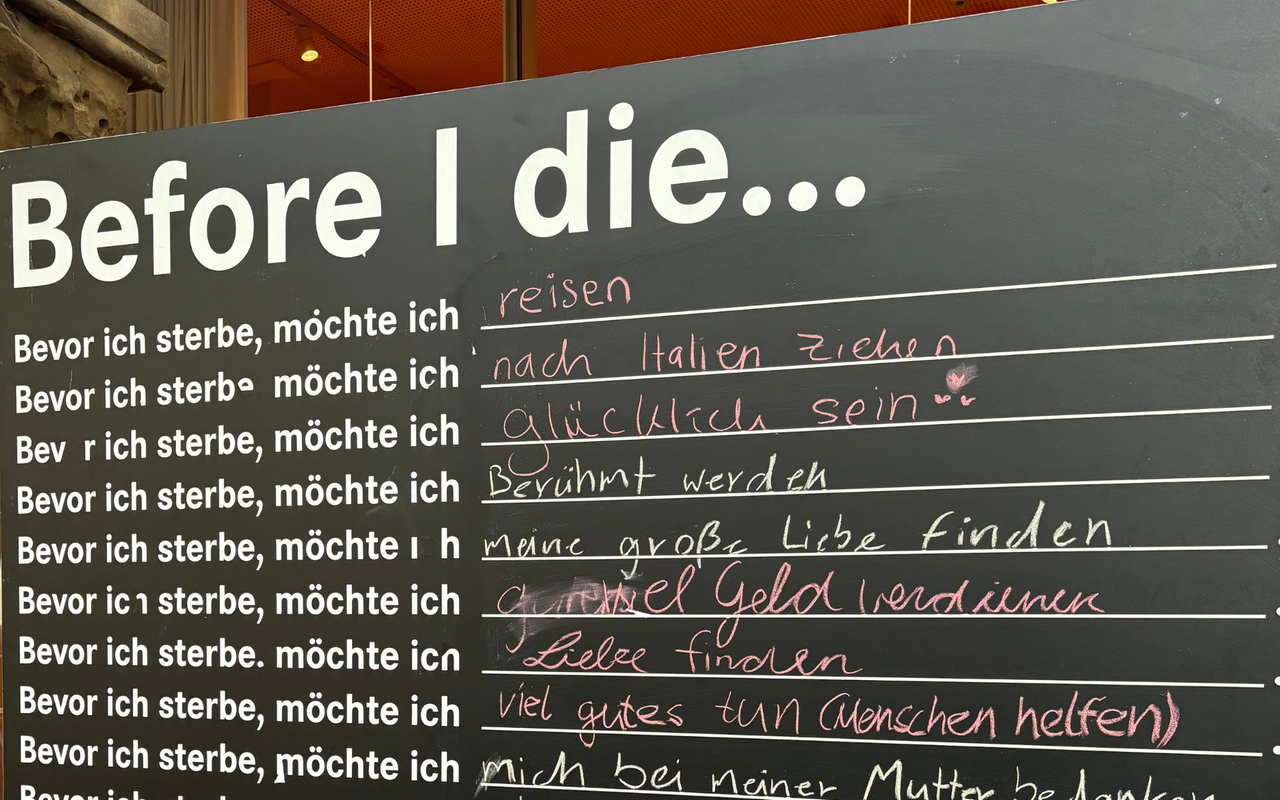 Before I die...
Bevor ich sterbe, möchte ich reisen
Bevor ich sterbe möchte ich nach Italien ziehen
Bev r ich sterbe, möchte ich glücklich sein
Bevor ich sterbe, möchte ich Berühmt werden
Bevor ich sterbe, möchte ich meine große Liebe finden
Bevor ich sterbe, möchte ich viel Geld verdienen
Bevor ich sterbe. möchte ich Liebe finden
Bevor ich sterbe, möchte ich viel gutes tun (Menschen helfen)
Bevor ich sterbe, möchte ich mich bei meiner Mutter bedanken